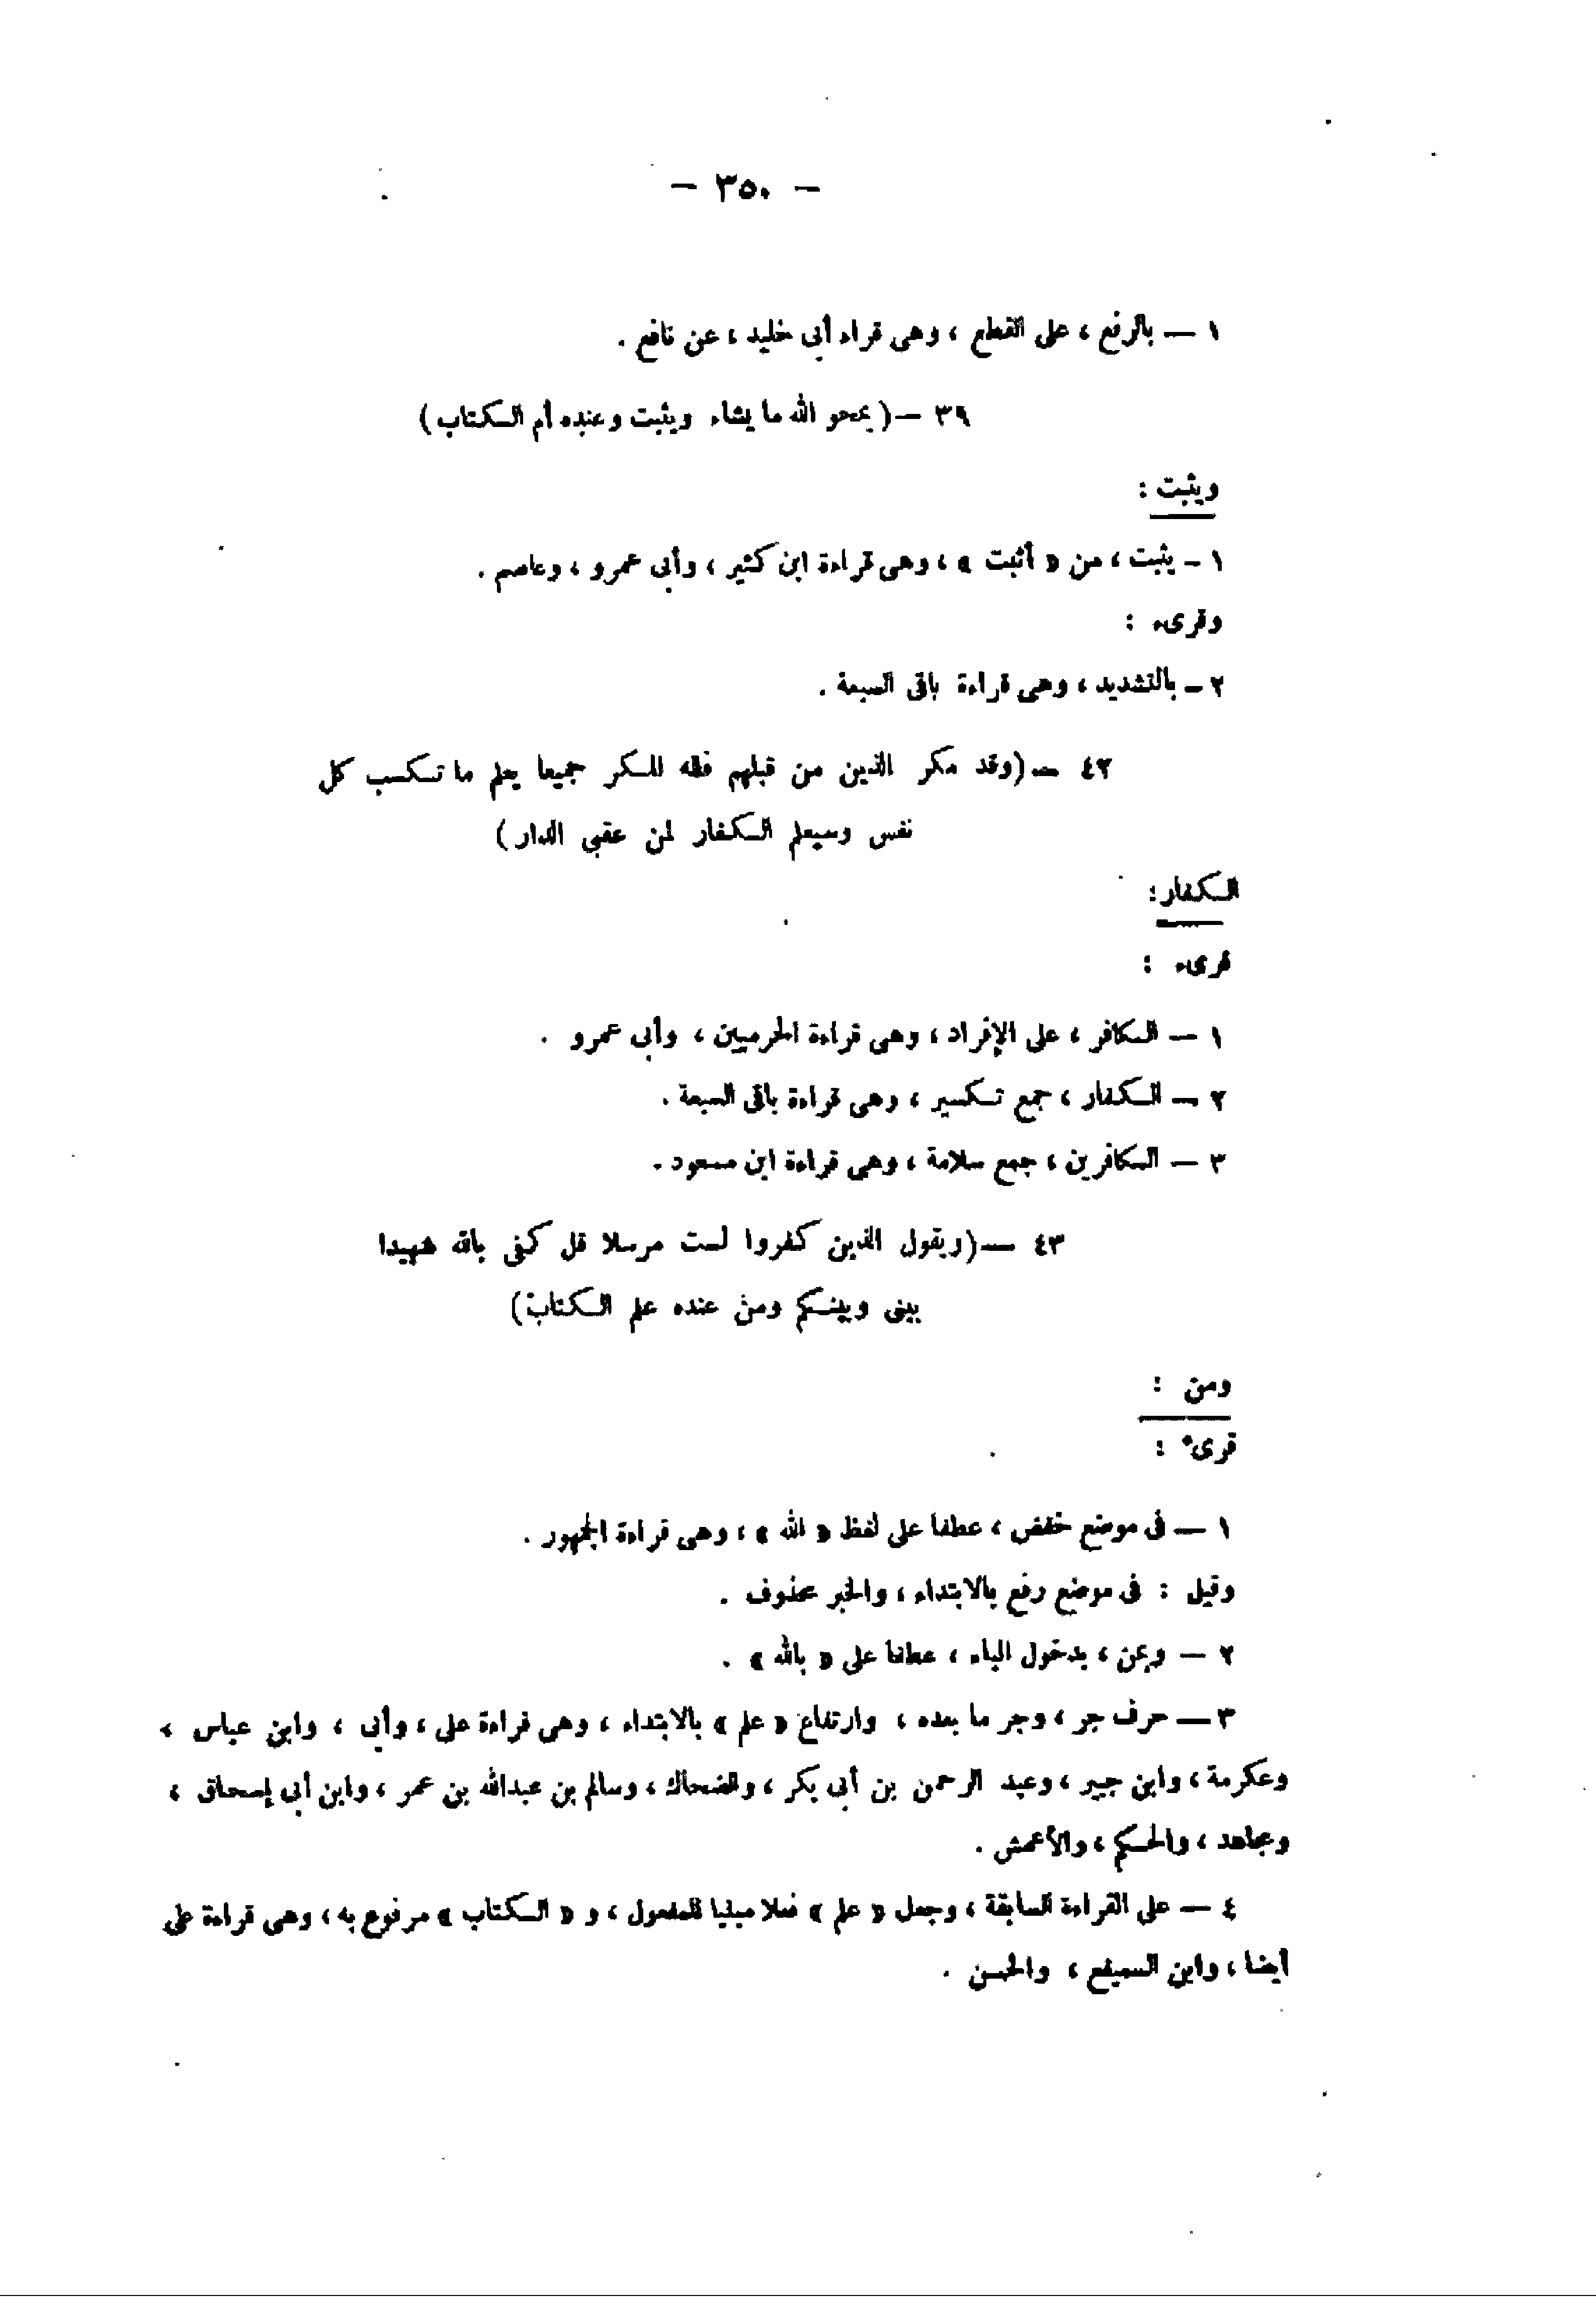 — ٣٥٠ —
١ — بالرفع ، على القطع ، وهى قراء أبى خليد ، عن نافع .
٣٩ — ( يمحو الله ما يشاء ويثبت وعنده أم الكتاب )
ويثبت :
١ - يثبت ، من « أثبت » ، وهى قراءة ابن كثير ، وأبى عمرو ، وعاصم .
وقرىء :
٢ - بالتشديد ، وهى قراءة باقى السبعة .
٤٢ — ( وقد مكر الذين من قبلهم فلله المكر جميعا يعلم ما تكسب كل
نفس وسيعلم الكفار لمن عقبى الدار )
الكفار :
قرىء :
١ — الكافر ، على الإفراد ، وهى قراءة الحرميين ، وأبى عمرو .
٢ — الكفار ، جمع تكسير ، وهى قراءة باقى السبعة .
٣ — الكافرين ، جمع سلامة ، وهى قراءة ابن مسعود .
٤٣ — ( ويقول الذين كفروا لست مرسلا قل كفى بالله شهيدا
بينى وبينكم ومن عنده علم الكتاب )
ومن :
قرىء :
١ — فى موضع خفض ، عطفا على لفظ « الله » ، وهى قراءة الجمهور .
وقيل : فى موضع رفع بالابتداء ، والخبر محذوف .
٢ — وبمن ، بدخول الباء ، عطفا على « بالله » .
٣ — حرف جر ، وجر ما بعده ، وارتفاع « علم » بالابتداء ، وهى قراءة على ، وأبى ، وابن عباس ،
وعكرمة ، وابن جبير ، وعبد الرحمن بن أبى بكر ، والضحاك ، وسالم بن عبدالله بن عمر ، وابن أبى إسحاق ،
ومجاهد ، والحكم ، والأعمش .
٤ — على القراءة السابقة ، وجعل « علم » فعلا مبنيا للمفعول ، و « الكتاب » مرفوع به ، وهى قراءة على
أيضا ، وابن السميفع ، والحسن .